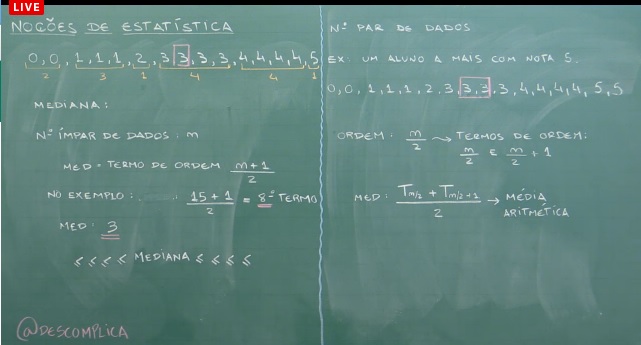 LIVE
NOÇÕES DE ESTATÍSTICA
0,0, 1,1,1, 2, 3,3,3,3, 4,4,4,4, 5
2 3 1 4 4 1
MEDIANA:
Nº ÍMPAR DE DADOS: m
MED = TERMO DE ORDEM (m+1)/2
NO EXEMPLO: (15+1)/2 = 8º TERMO
MED: 3
≤ ≤ ≤ ≤ MEDIANA ≤ ≤ ≤ ≤
@DESCOMPLICA
Nº PAR DE DADOS
EX: UM ALUNO A MAIS COM NOTA 5.
0,0,1,1,1,2,3,3,3,3,4,4,4,4,5,5
ORDEM: m/2 → TERMOS DE ORDEM:
m/2 E m/2 + 1
MED: (T m/2 + T m/2+1)/2 → MÉDIA
ARITMÉTICA